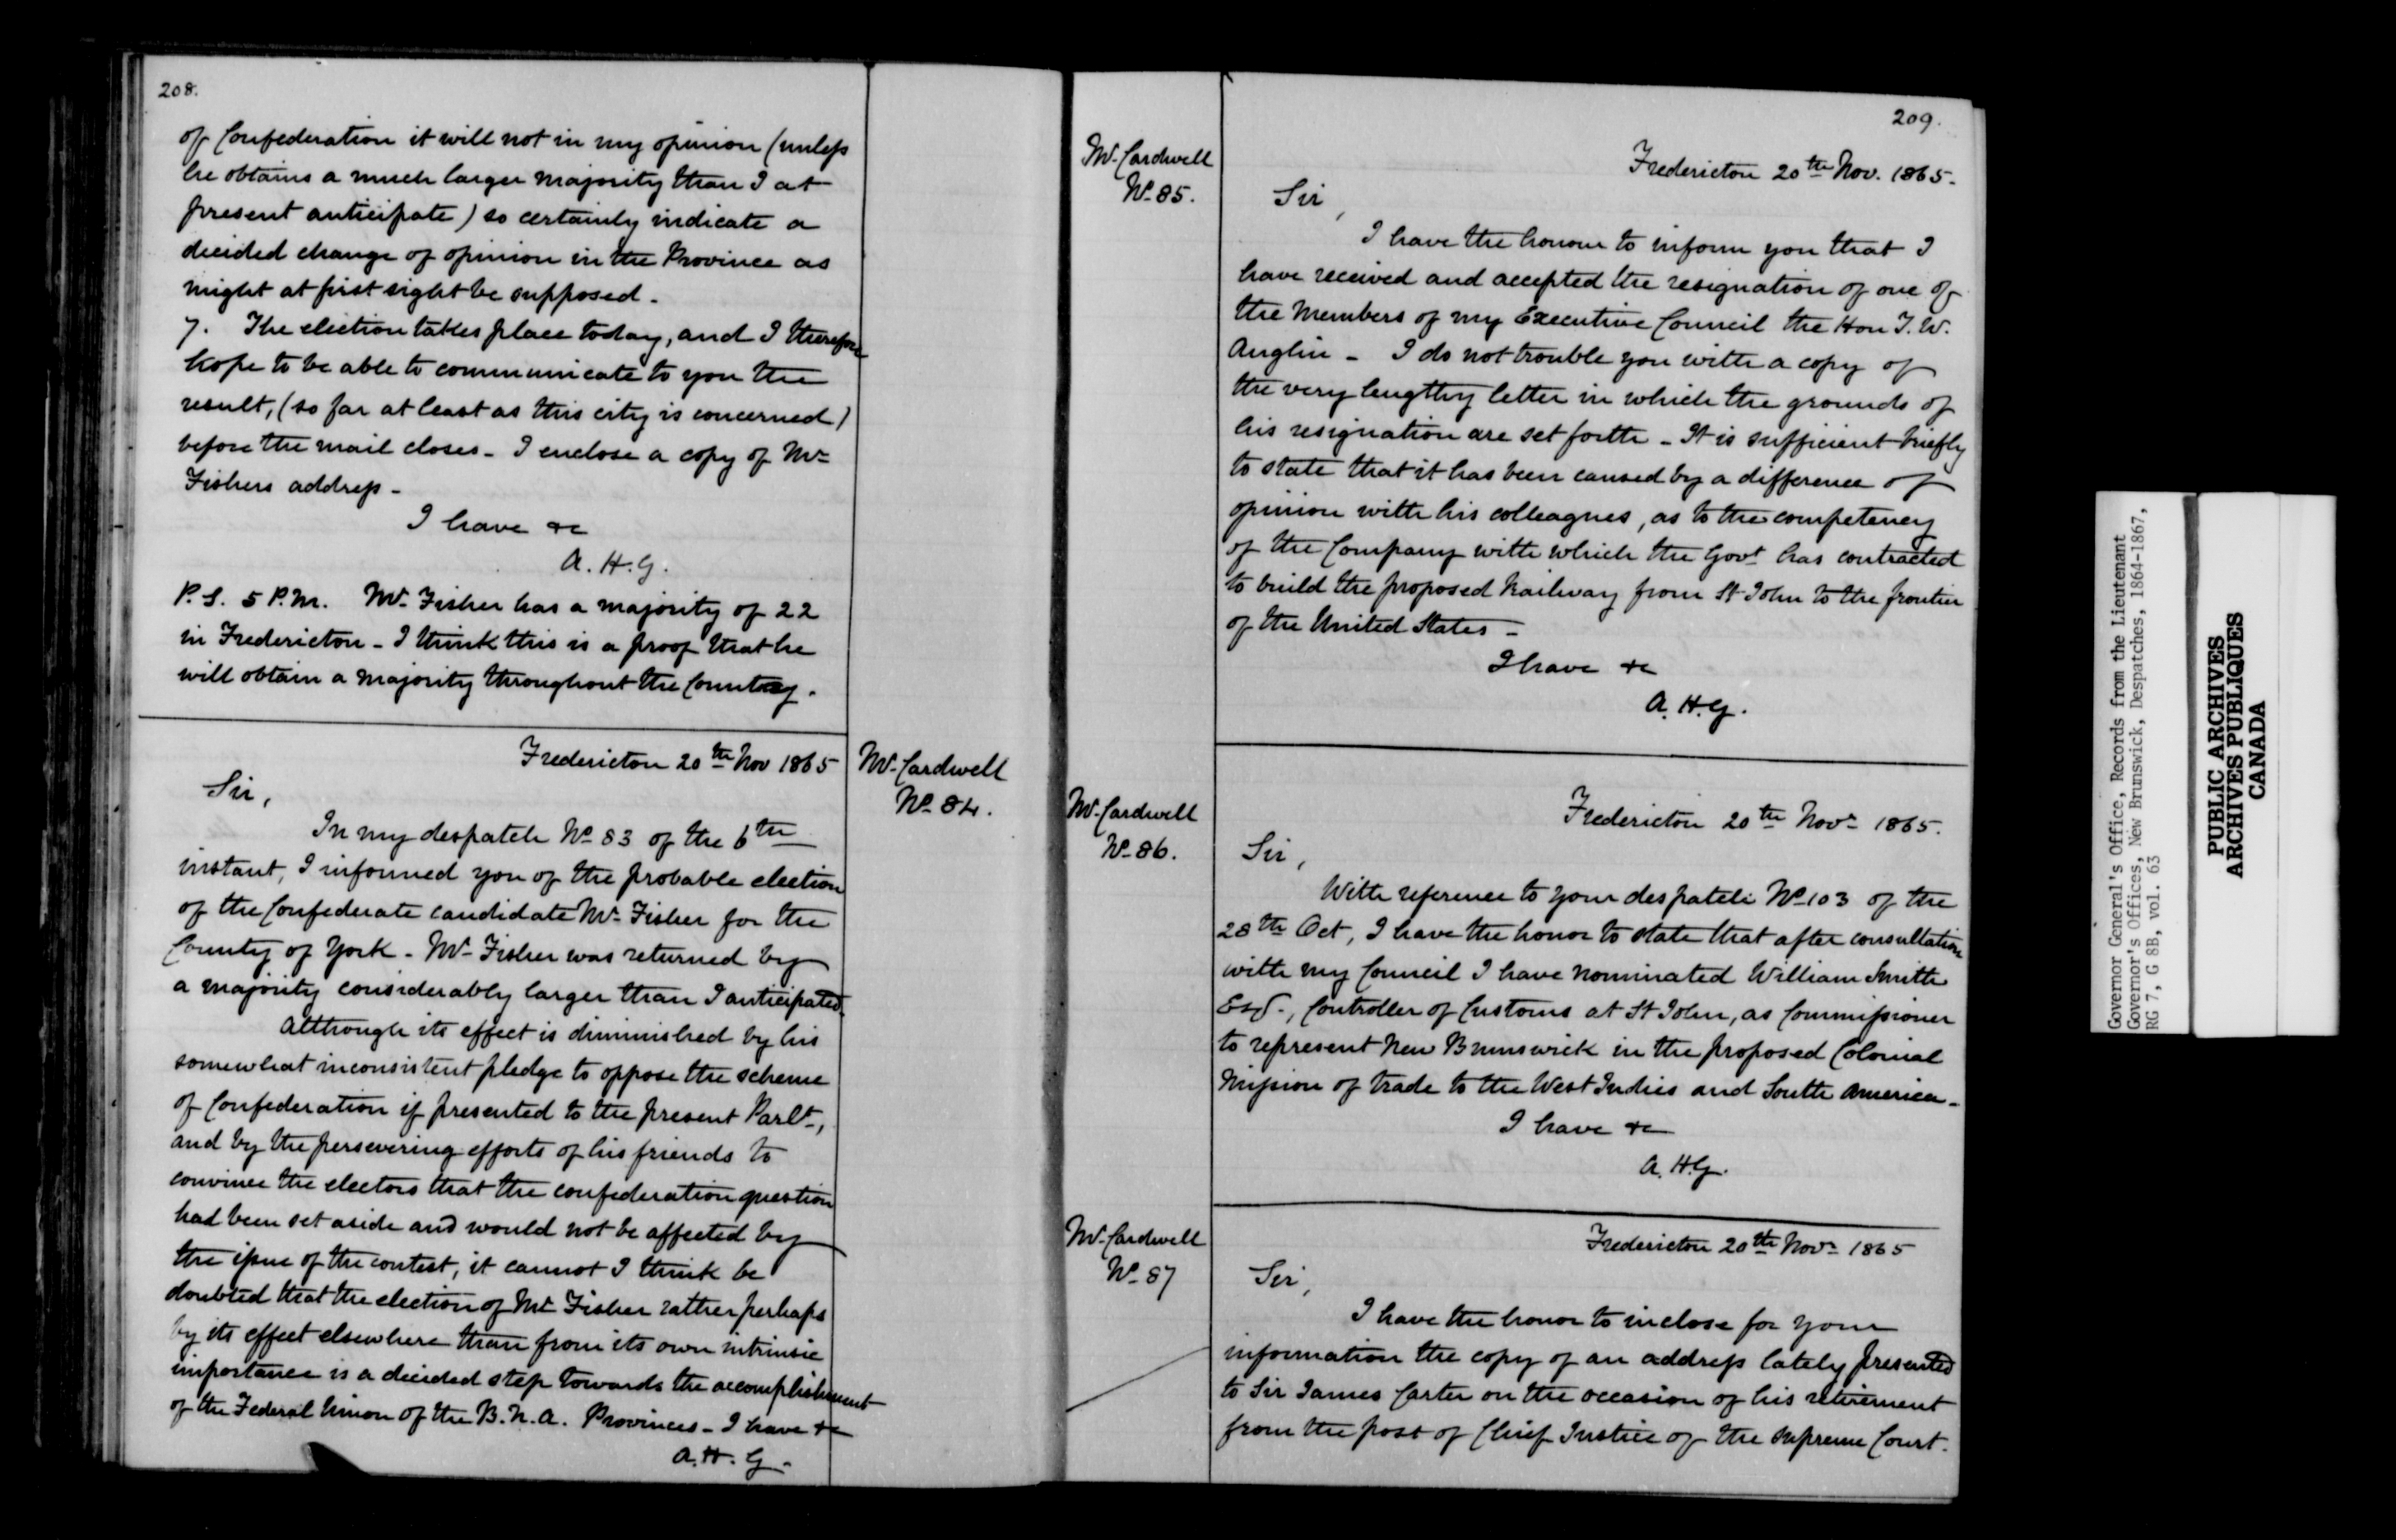 208.
of Confederation it will not in my opinion (unless
he obtains a much larger majority than I at
present anticipate) so certainly indicate a
decided change of opinion in the Province as
might at first sight be supposed.
7. The election takes place today, and I therefore
hope to be able to communicate to you the
result, (so far at least as this city is concerned)
before the mail closes. I enclose a copy of Mr
Fishers address.
I have &c
A. H. G.
P. S. 5 P.M. Mr Fisher has a majority of 22
in Fredericton. I think this is a proof that he
will obtain a majority throughout the County.
Fredericton 20th Nov 1865
Mr Cardwell
No 84.
Sir,
In my despatch No 83 of the 6th
instant, I informed you of the probable election
of the Confederate candidate Mr Fisher for the
County of York. Mr Fisher was returned by
a majority considerably larger than I anticipated.
Although its effect is diminished by his
somewhat inconsistent pledge to oppose the scheme
of Confederation if presented to the present Parlt,
and by the persevering efforts of his friends to
convince the electors that the confederation question
had been set aside and would not be affected by
the issue of the contest, it cannot I think be
doubted that the election of Mr Fisher rather perhaps
by its effect elsewhere than from its own intrinsic
importance is a decided step towards the accomplishment
of the Federal Union of the B. N. A. Provinces. I have &c
A. H. G.
209.
Mr Cardwell
No 85.
Fredericton 20th Nov. 1865.
Sir,
I have the honour to inform you that I
have received and accepted the resignation of one of
the Members of my Executive Council the Hon T. W.
Anglin. I do not trouble you with a copy of
the very lengthy letter in which the grounds of
his resignation are set forth. It is sufficient briefly
to state that it has been caused by a difference of
opinion with his colleagues, as to the competency
of the Company with which the Govt has contracted
to build the proposed Railway from St John to the frontier
of the United States.
I have &c
A. H. G.
Mr Cardwell
No 86.
Fredericton 20th Novr 1865.
Sir,
With reference to your despatch No 103 of the
28th Oct, I have the honor to state that after consultation
with my Council I have nominated William Smith
Esqr., Controller of Customs at St John, as Commissioner
to represent New Brunswick in the proposed Colonial
Mission of trade to the West Indies and South America.
I have &c
A. H. G.
Mr Cardwell
No 87
Fredericton 20th Novr 1865
Sir,
I have the honor to inclose for your
information the copy of an address lately presented
to Sir James Carter on the occasion of his retirement
from the post of Chief Justice of the Supreme Court.
Governor General's Office, Records from the Lieutenant
Governor's Offices, New Brunswick, Despatches, 1864-1867,
RG 7, G 8B, vol. 63
PUBLIC ARCHIVES
ARCHIVES PUBLIQUES
CANADA